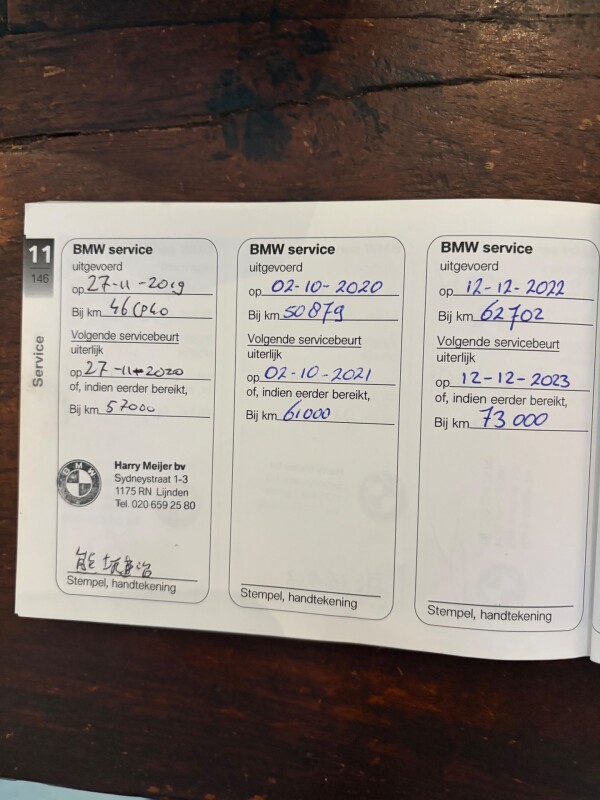 11
146
Service
BMW service
uitgevoerd
op 27-11-2019
Bij km
Volgende servicebeurt
uiterlijk
op 27-11-2020
of, indien eerder bereikt,
Bij km 57000
BMW
Harry Meijer bv
Sydneystraat 1-3
1175 RN Lijnden
Tel. 020 659 25 80
Stempel, handtekening
BMW service
uitgevoerd
op 02-10-2020
Bij km 50879
Volgende servicebeurt
uiterlijk
op 02-10-2021
of, indien eerder bereikt,
Bij km 61000
Stempel, handtekening
BMW service
uitgevoerd
op 12-12-2022
Bij km 62702
Volgende servicebeurt
uiterlijk
op 12-12-2023
of, indien eerder bereikt,
Bij km 73 000
Stempel, handtekening